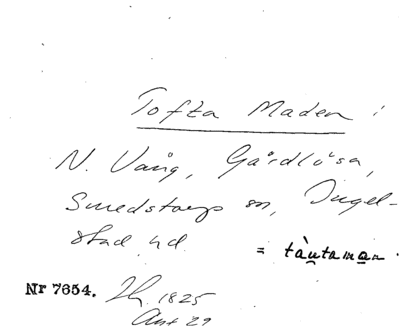 Tofta Maden i
N. Vång, Gårdlösa,
Smedstorps sn, Ingel-
stad hd. = tàutaman.
Nr 7654. Lh. 1825
Akt 29